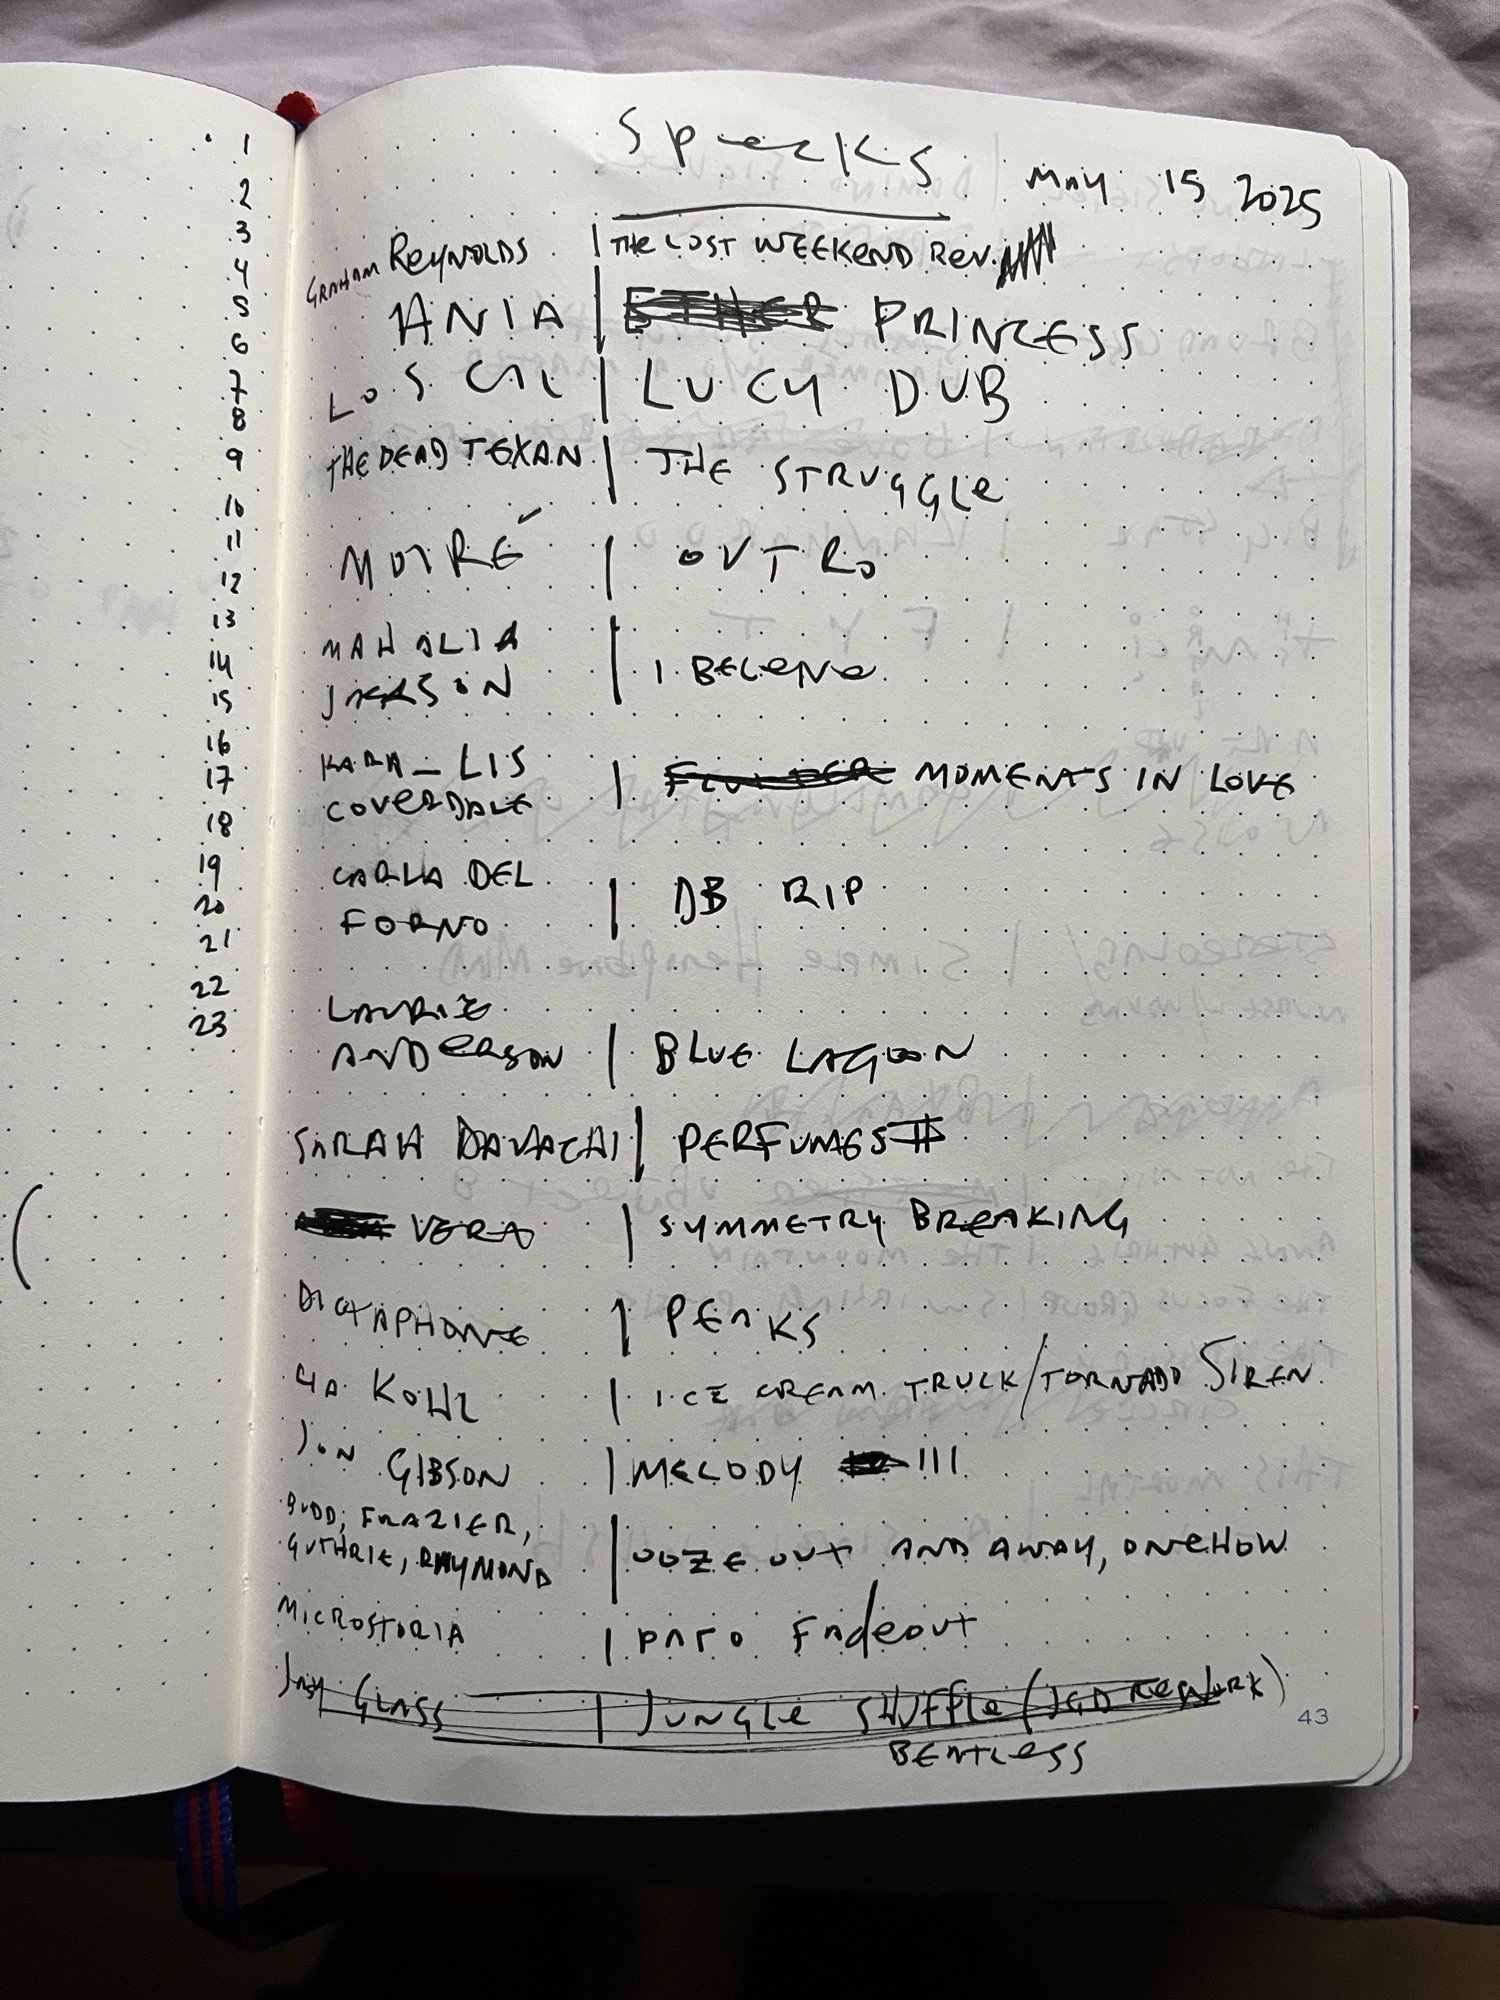 1
2
3
4
5
6
7
8
9
10
11
12
13
14
15
16
17
18
19
20
21
22
23
Specks
MAY 15 2025
GRAHAM REYNOLDS | THE LOST WEEKEND REV.
ANIA | ETHER PRINCESS
LOSCIL | LUCY DUB
THE DEAD TEXAN | THE STRUGGLE
MOIRÉ | OUTRO
MAHALIA
JACKSON | I BELIEVE
KARA-LIS
COVERDALE | FLUNDER MOMENTS IN LOVE
CARLA DEL
FORNO | DB RIP
LAURIE
ANDERSON | BLUE LAGOON
SARAH DAVACHI | PERFUMES II
VERA | SYMMETRY BREAKING
DICTAPHONE | PEAKS
LIA KOHL | ICE CREAM TRUCK/TORNADO SIREN
JON GIBSON | MELODY III
BUDD, FRAZIER,
GUTHRIE, RAYMOND | OOZE OUT AND AWAY, ONEHOW
MICROSTORIA | PATO FADEOUT
JAY GLASS | JUNGLE SHUFFLE (JGD REWORK)
BEATLESS
43